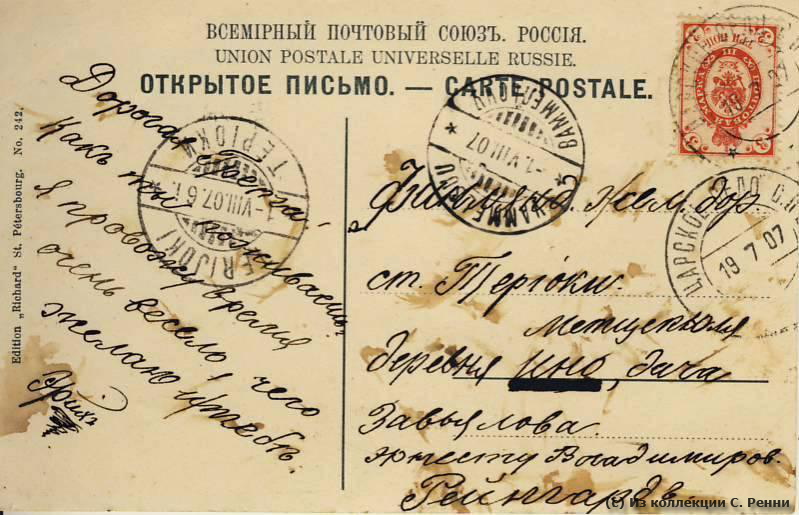 ВСЕМІРНЫЙ ПОЧТОВЫЙ СОЮЗЪ. РОССІЯ.
UNION POSTALE UNIVERSELLE RUSSIE.
ОТКРЫТОЕ ПИСЬМО. — CARTE POSTALE.
Edition „Richard" St. Pétersbourg. No. 242.
Дорогая
какъ ты поживаешь?
я провожу время
очень весело! чего
желаю и тебѣ.
Эрихъ
Финлянд. жел. дор.
ст. Теріоки.
деревня Ино, дача
Завьялова.
Эрнесту Владимиров.
Рейнгардъ.
TERIJOKI
ТЕРІОКИ
1-VIII.07.6
VAMMELJOKI
-1.VIII.07
ЦАРСКОЕ СЕЛО
19 7 07
ТРИ КОП.
ПОЧТОВАЯ МАРКА
3
(c) Из коллекции С. Ренни